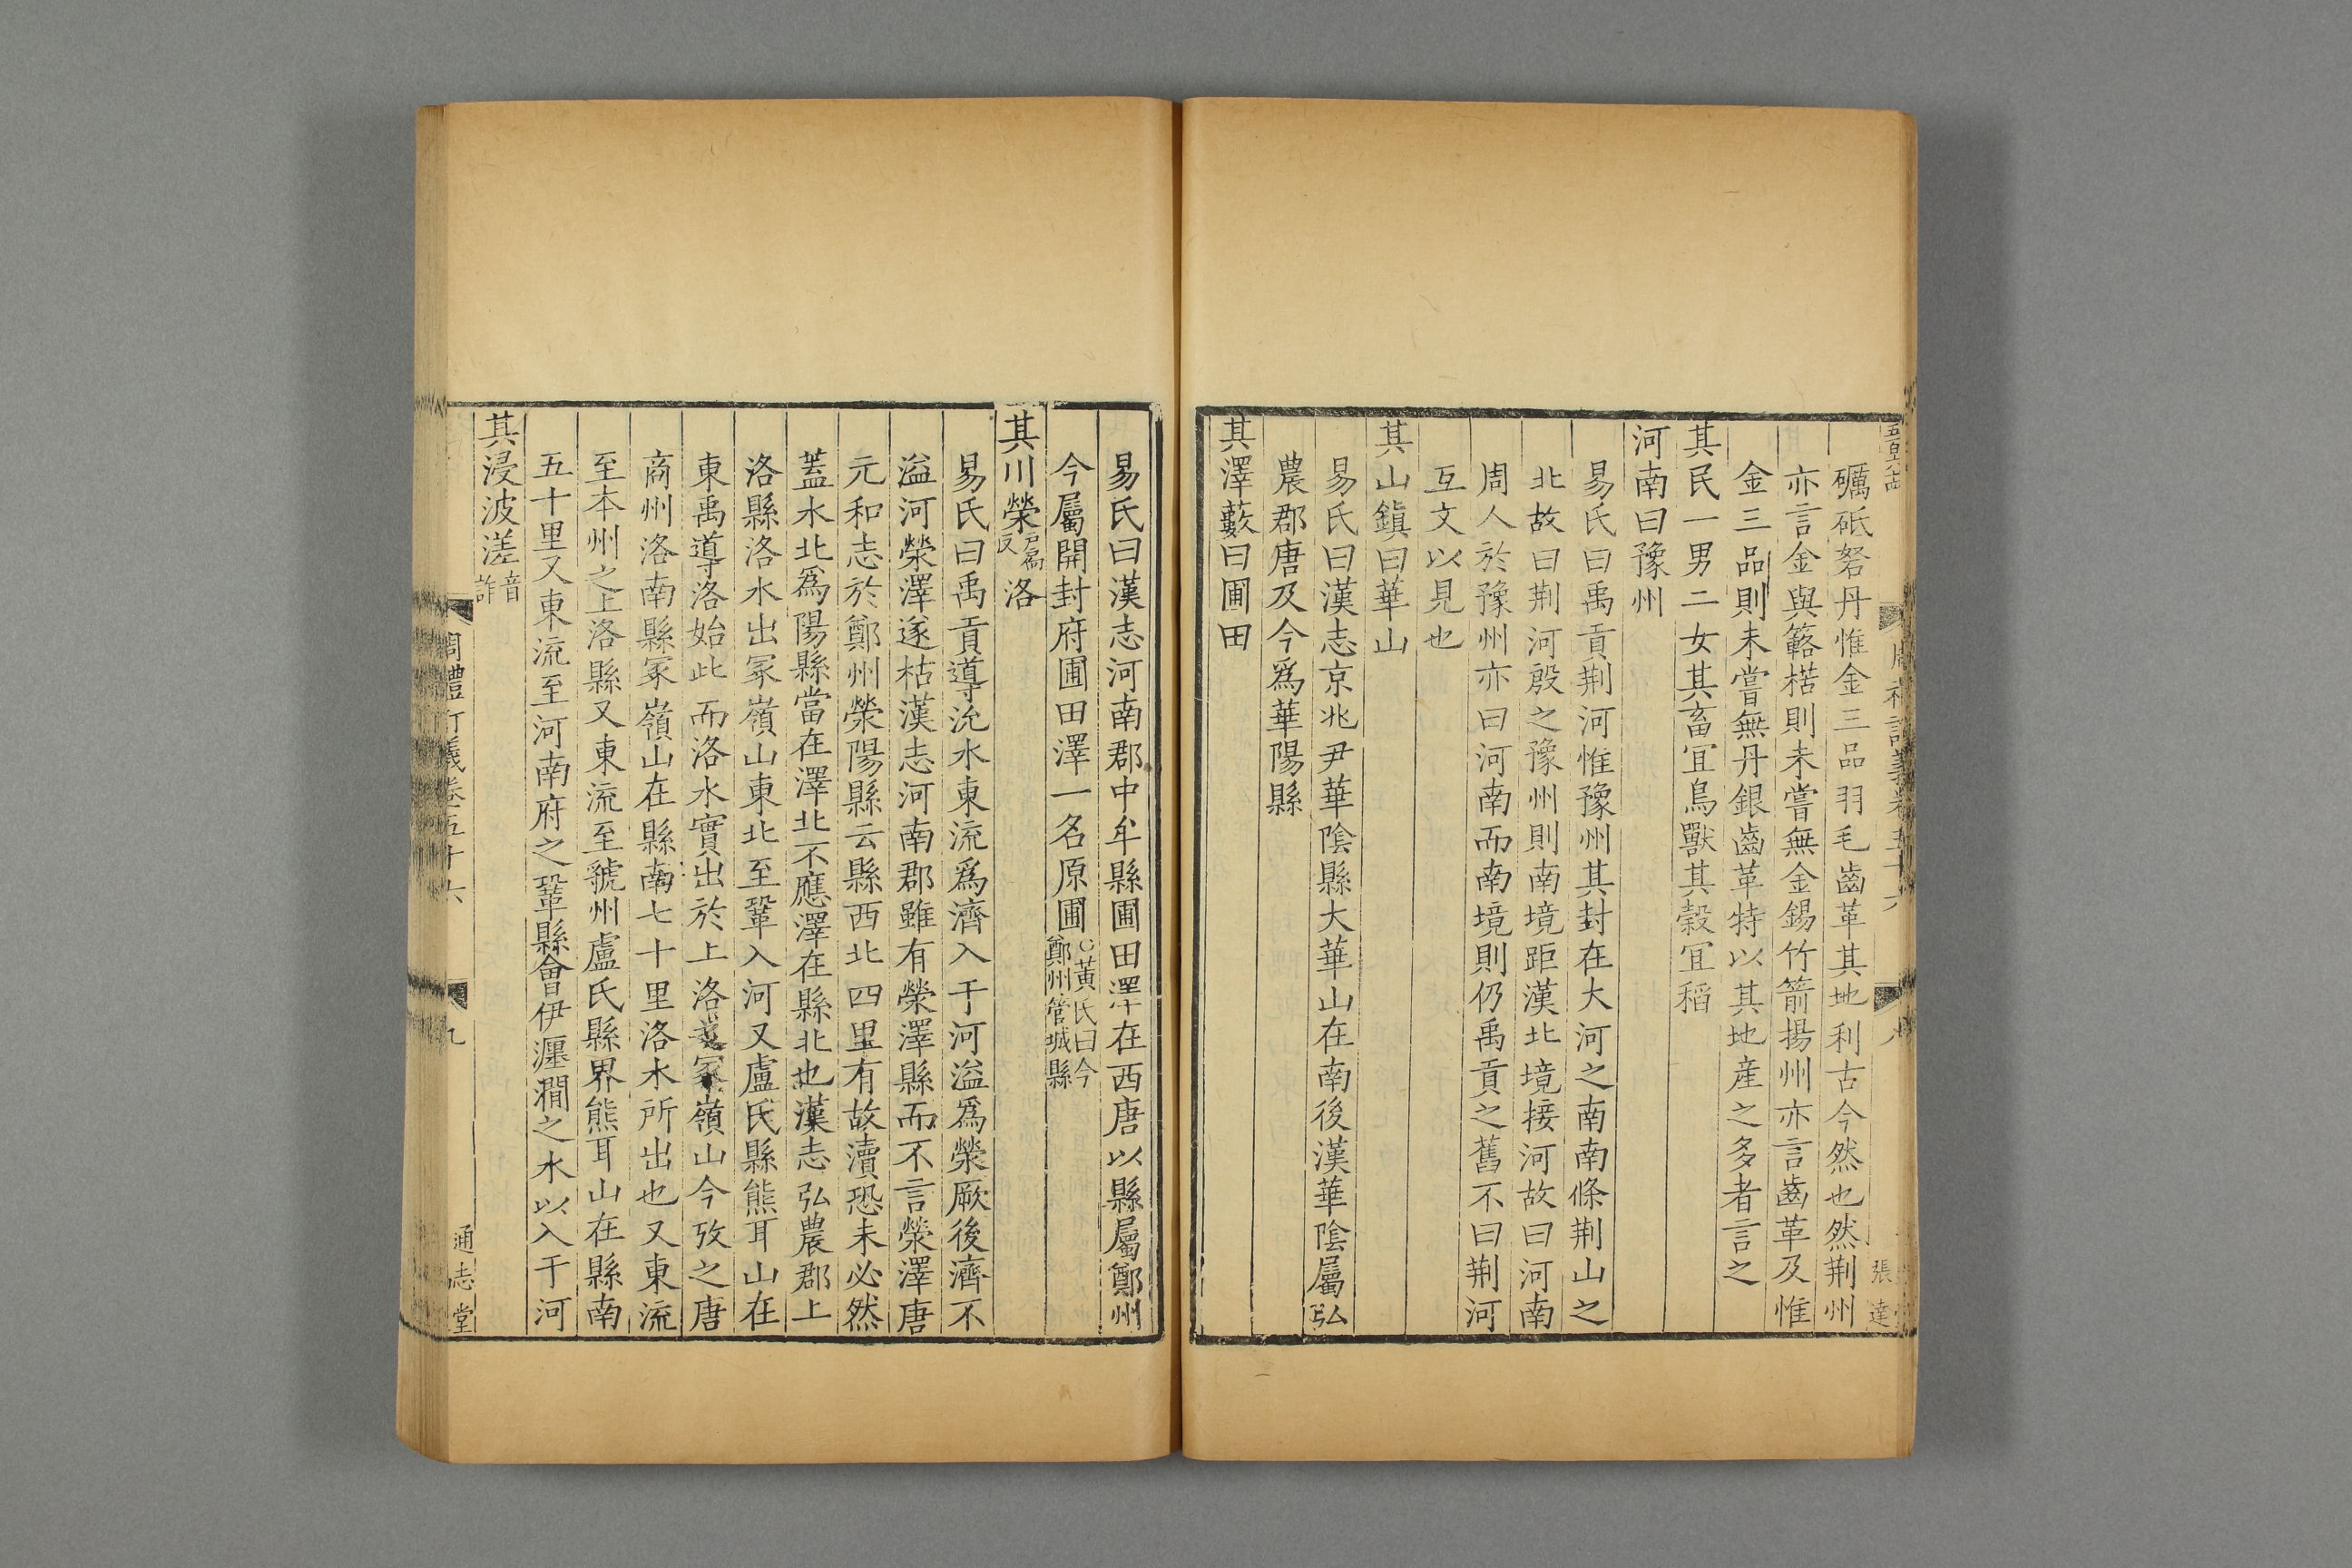 礪砥砮丹惟金三品羽毛齒革其地利古今然也然荆州
亦言金與簵楛則未嘗無金錫竹箭揚州亦言齒革及惟
金三品則未嘗無丹銀齒革特以其地產之多者言之
其民一男二女其畜冝鳥獸其穀冝稻
河南曰豫州
易氏曰禹貢荆河惟豫州其封在大河之南南條荆山之
北故曰荆河殷之豫州則南境距漢北境接河故曰河南
周人於豫州亦曰河南而南境則仍禹貢之舊不曰荆河
互文以見也
其山鎮曰華山
易氏曰漢志京兆尹華陰縣大華山在南後漢華陰屬弘
農郡唐及今爲華陽縣
其澤藪曰圃田
張達
易氏曰漢志河南郡中牟縣圃田澤在西唐以縣屬鄭州
今屬開封府圃田澤一名原圃○黃氏曰今鄭州管城縣
其川滎反洛
易氏曰禹貢導沇水東流爲濟入于河溢爲滎厥後濟不
溢河滎澤遂枯漢志河南郡雖有滎澤縣而不言滎澤唐
元和志於鄭州滎陽縣云縣西北四里有故瀆恐未必然
蓋水北爲陽縣當在澤北不應澤在縣北也漢志弘農郡上
洛縣洛水出冢嶺山東北至鞏入河又盧氏縣熊耳山在
東禹導洛始此而洛水實出於上洛冢嶺山今攷之唐
商州洛南縣冢嶺山在縣南七十里洛水所出也又東流
至本州之上洛縣又東流至虢州盧氏縣界熊耳山在縣南
五十里又東流至河南府之鞏縣會伊瀍澗之水以入于河
其浸波溠音詐
周禮訂義卷五十六
九
通志堂